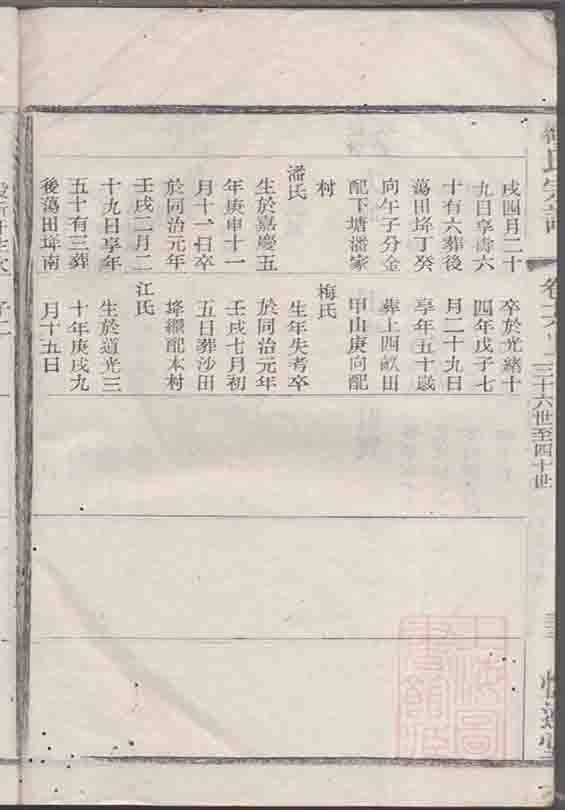 三十六世至四十世
戌四月二十
九日享壽六
十有六葬後
蕩田垰丁癸
向午子分金
配下塘潘家
村
潘氏
生於嘉慶五
年庚申十一
月十一日卒
於同治元年
壬戌二月二
十九日享年
五十有三葬
後蕩田垰南
卒於光緒十
四年戊子七
月二十九日
享年五十歲
葬上四畝田
甲山庚向配
梅氏
生年失考卒
於同治元年
壬戌七月初
五日葬沙田
垰繼配本村
江氏
生於道光三
十年庚戌九
月十五日
上海圖
書館藏